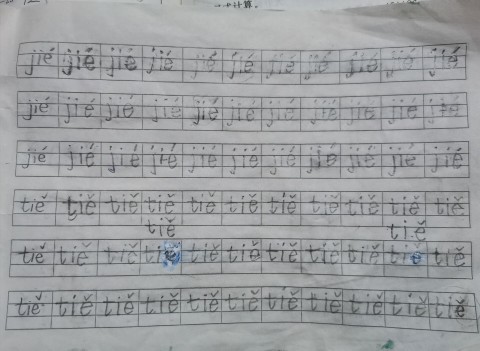 计算。
jié jié jié jié jié jié jié jié jié jié jié
jié jié jié jié jié jié jié jié jié jié jié
jié jié jié jié jié jié jié jié jié jié jié
tiě tiě tiě tiě tiě tiě tiě tiě tiě tiě tiě
tiě tiě
tiě tiě tiě tiě tiě tiě tiě tiě tiě tiě tiě
tiě tiě tiě tiě tiě tiě tiě tiě tiě tiě tiě